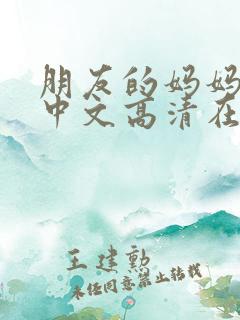 朋友的妈妈
中文高清在
王建勲
未经同意禁止转载